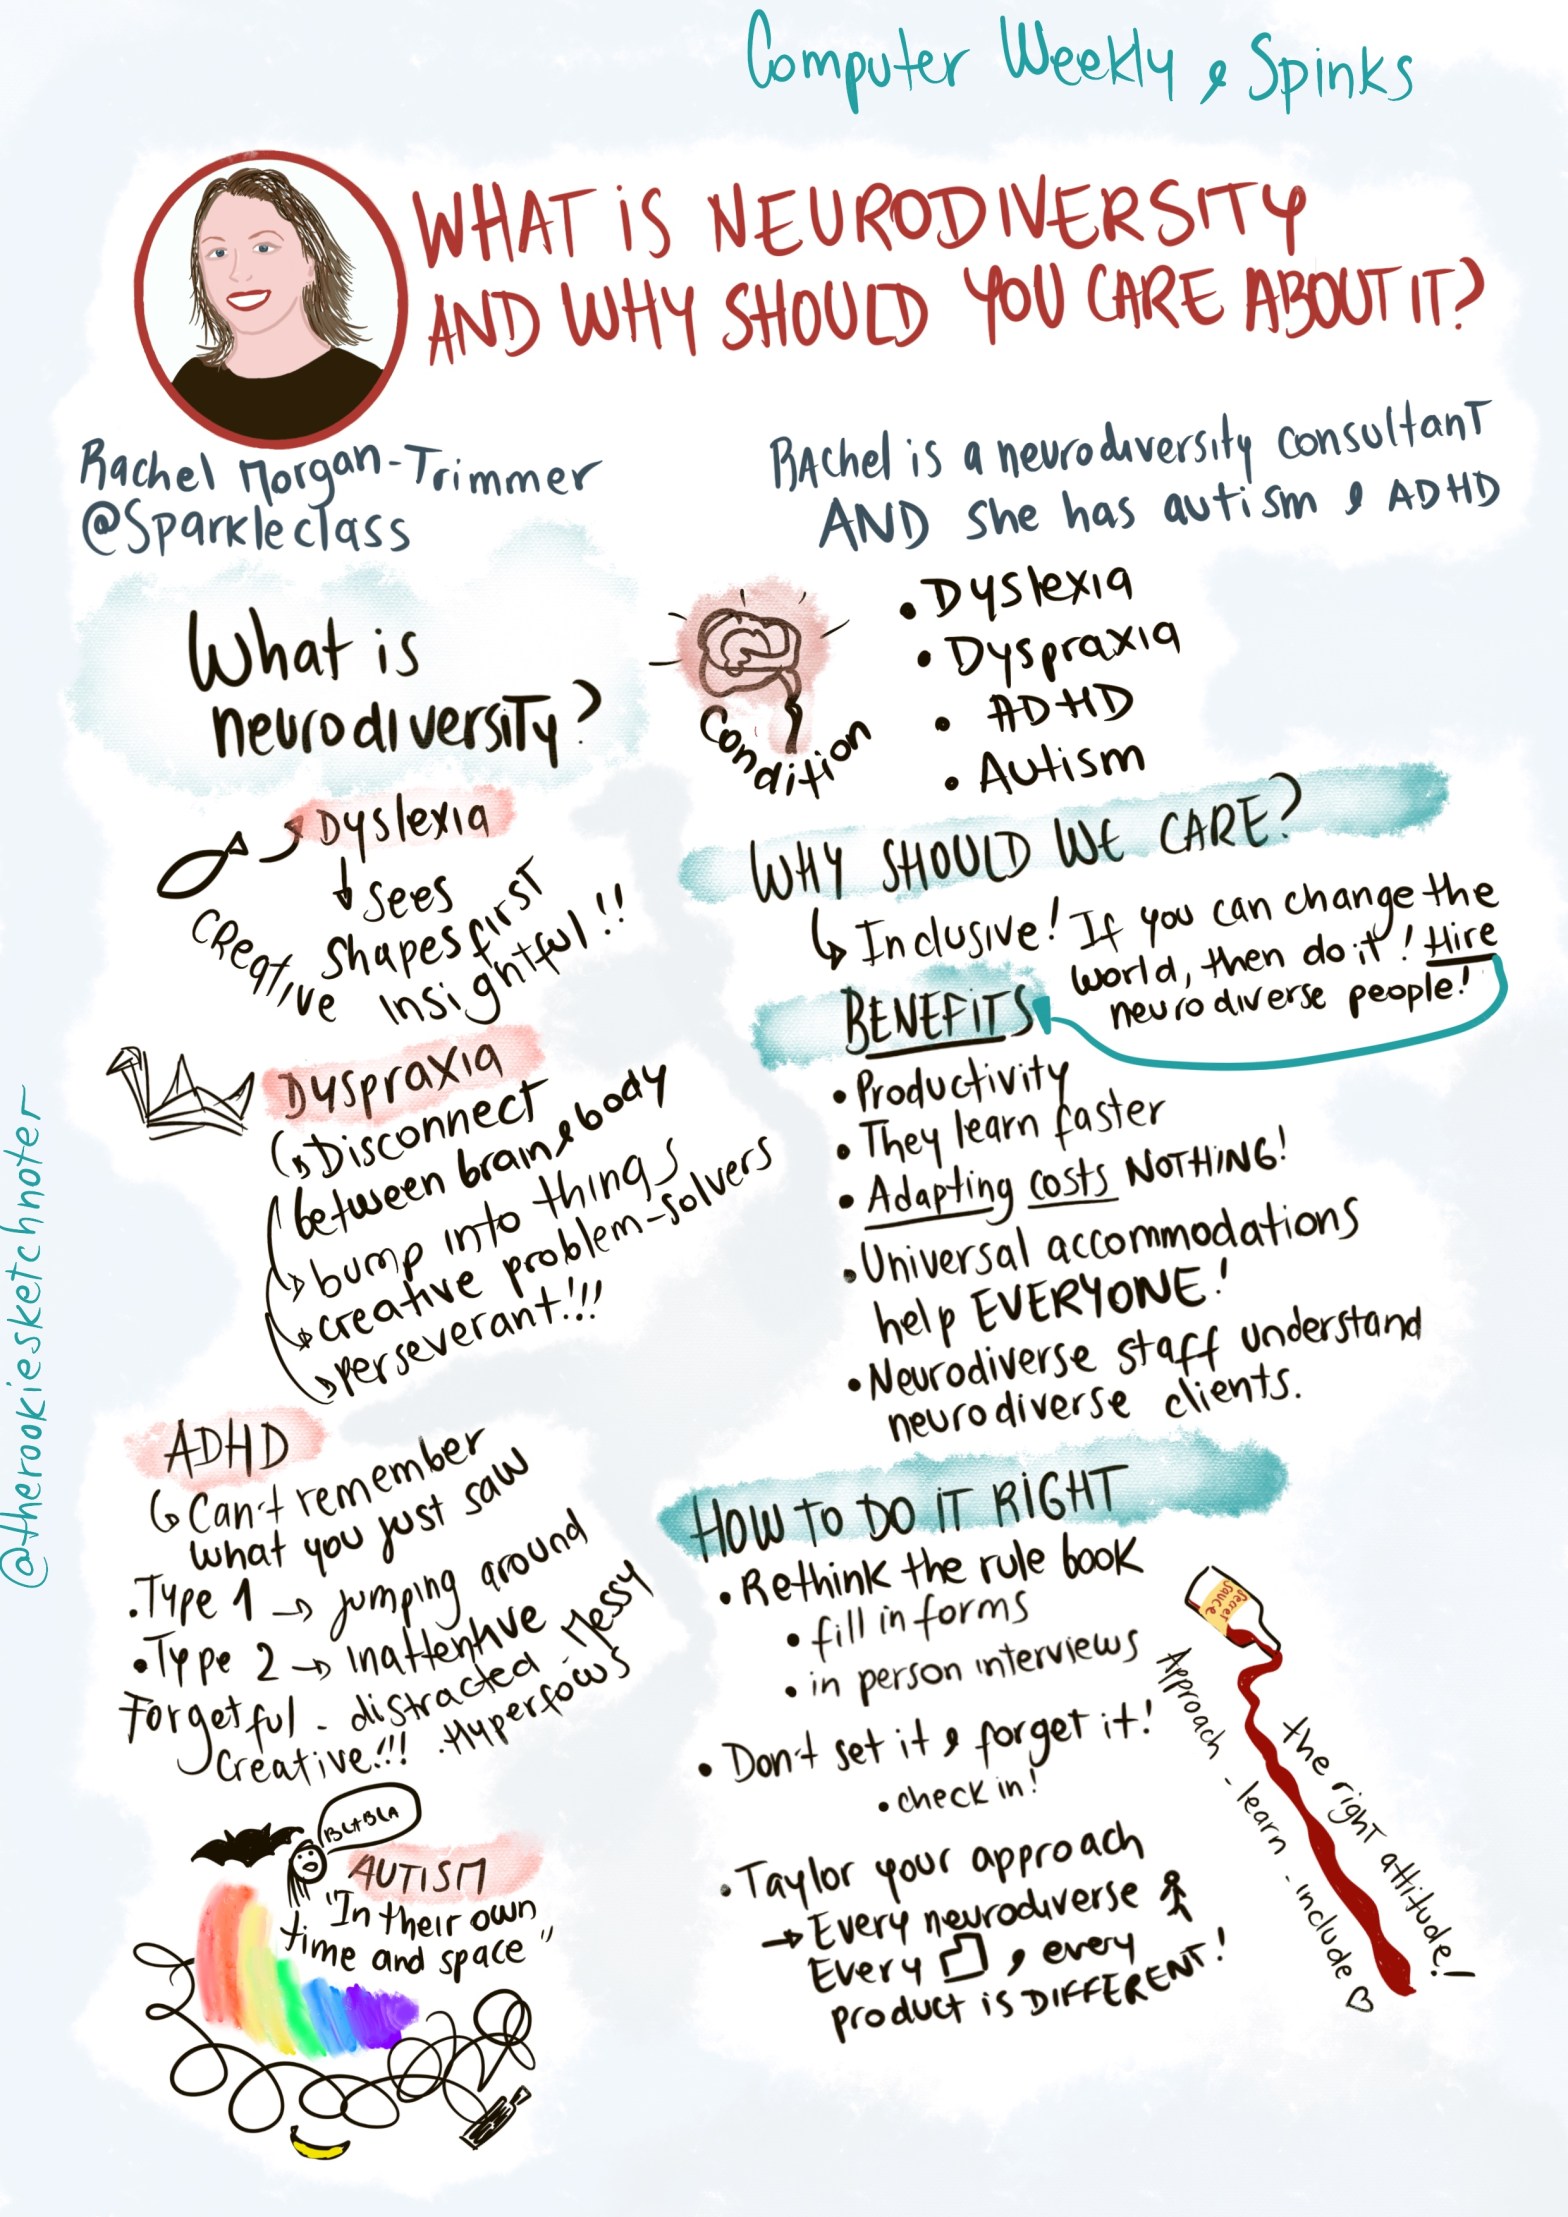 Computer Weekly & Spinks
WHAT IS NEURODIVERSITY
AND WHY SHOULD YOU CARE ABOUT IT?
Rachel Morgan-Trimmer
@Sparkleclass
RAchel is a neurodiversity consultant
AND she has autism & ADHD
What is
neurodiversity?
Condition
• Dyslexia
• Dyspraxia
• ADHD
• Autism
Dyslexia
Sees
shapes first
Creative
Insightful!!
Dyspraxia
Disconnect
between brain & body
bump into things
creative problem-solvers
perseverant!!!
ADHD
Can't remember
what you just saw
• Type 1 → jumping around
• Type 2 → Inattentive
Forgetful - distracted - Messy
Creative!!! - Hyperfocus
BLABLA
AUTISM
"In their own
time and space"
WHY SHOULD WE CARE?
Inclusive! If you can change the
world, then do it! Hire
neurodiverse people!
BENEFITS
• Productivity
• They learn faster
• Adapting costs NOTHING!
• Universal accommodations
help EVERYONE!
• Neurodiverse staff understand
neurodiverse clients.
HOW TO DO IT RIGHT
• Rethink the rule book
• fill in forms
• in person interviews
• Don't set it & forget it!
• check in!
• Taylor your approach
→ Every neurodiverse
Every , every
product is DIFFERENT!
Secret
sauce
the right attitude!
Approach - learn - include
@therookiesketchnoter